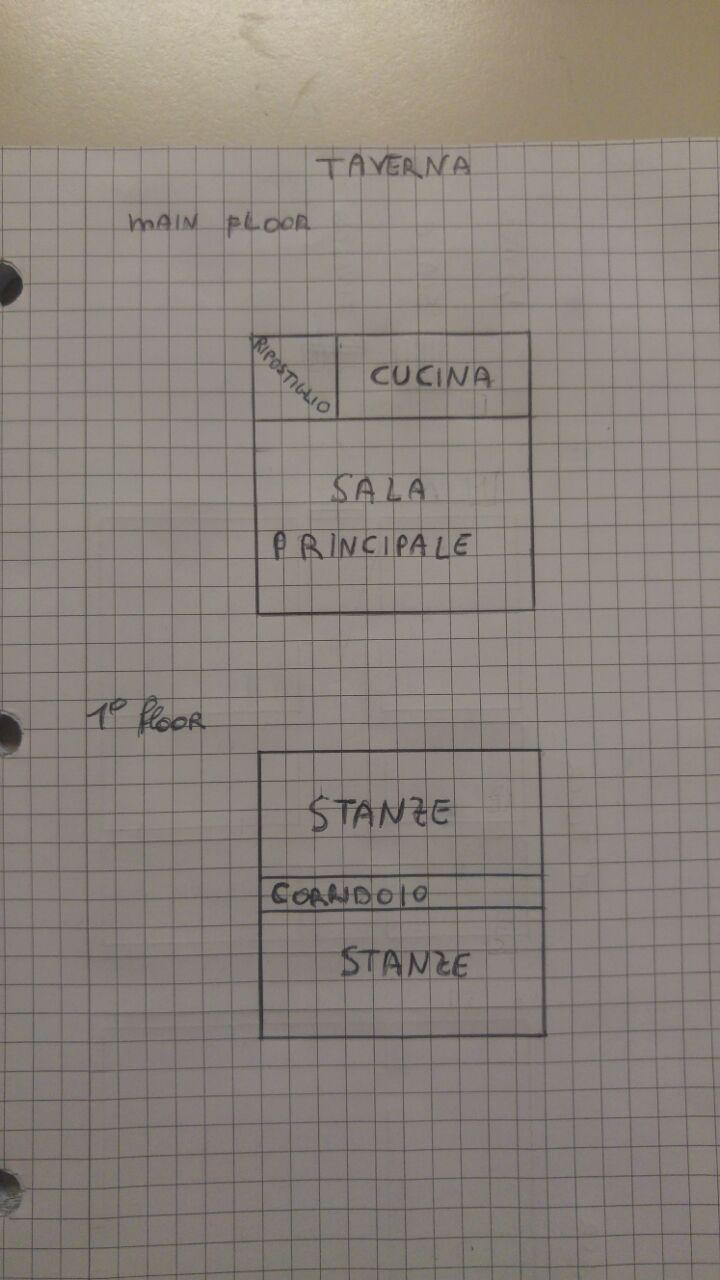 TAVERNA
MAIN FLOOR
RIPOSTIGLIO
CUCINA
SALA
PRINCIPALE
1º floor
STANZE
CORRIDOIO
STANZE